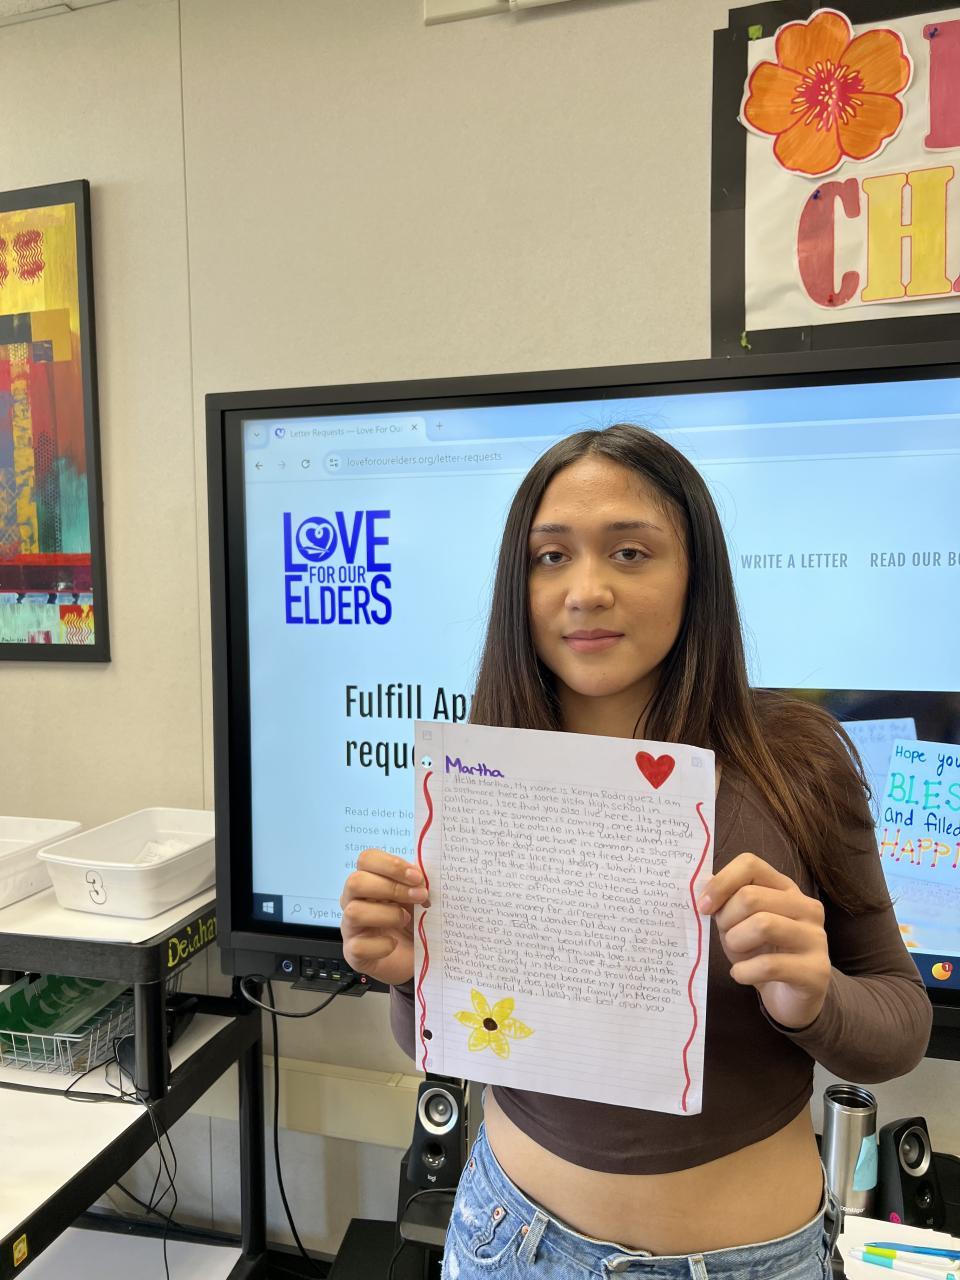 CHA
Letter Requests — Love For Ou
loveforourelders.org/letter-requests
LOVE
FOR OUR
ELDERS
WRITE A LETTER READ OUR B
Fulfill Ap
reque
Read elder bio
choose which
stamped and
Type he
Hope you
BLES
and filled
HAPPI
3
Delahay
logi
1
Martha
Hello Martha, My name is Kenya Rodriguez I am
a sophmore here at Norte Vista High School in
California, I see that you also live here. Its getting
hotter as the summer is coming, one thing about
me is I love to be outside in the water when its
hot but something we have in common is shopping,
I can shop for days and not get tired because
spelling myself is like my therapy. When I have
time to go to the thrift store it relaxes me too,
when its not all crowded and cluttered with
clothes, Its super affortable to because now and
days clothes are expensive and I need to find
a way to save money for different necesities
I hope your having a wonderful day and you
continue too. Each day is a blessing, be able
to wake up to another beautiful day, seeing your
grandkids and treating them with love is also a
very big blessing to them. I love that you think
about your family in Mexico and provided them
with clothes and money because my gradma also
does and I really do help my family in Mexico.
Have a beautiful day, I wish the best upon you